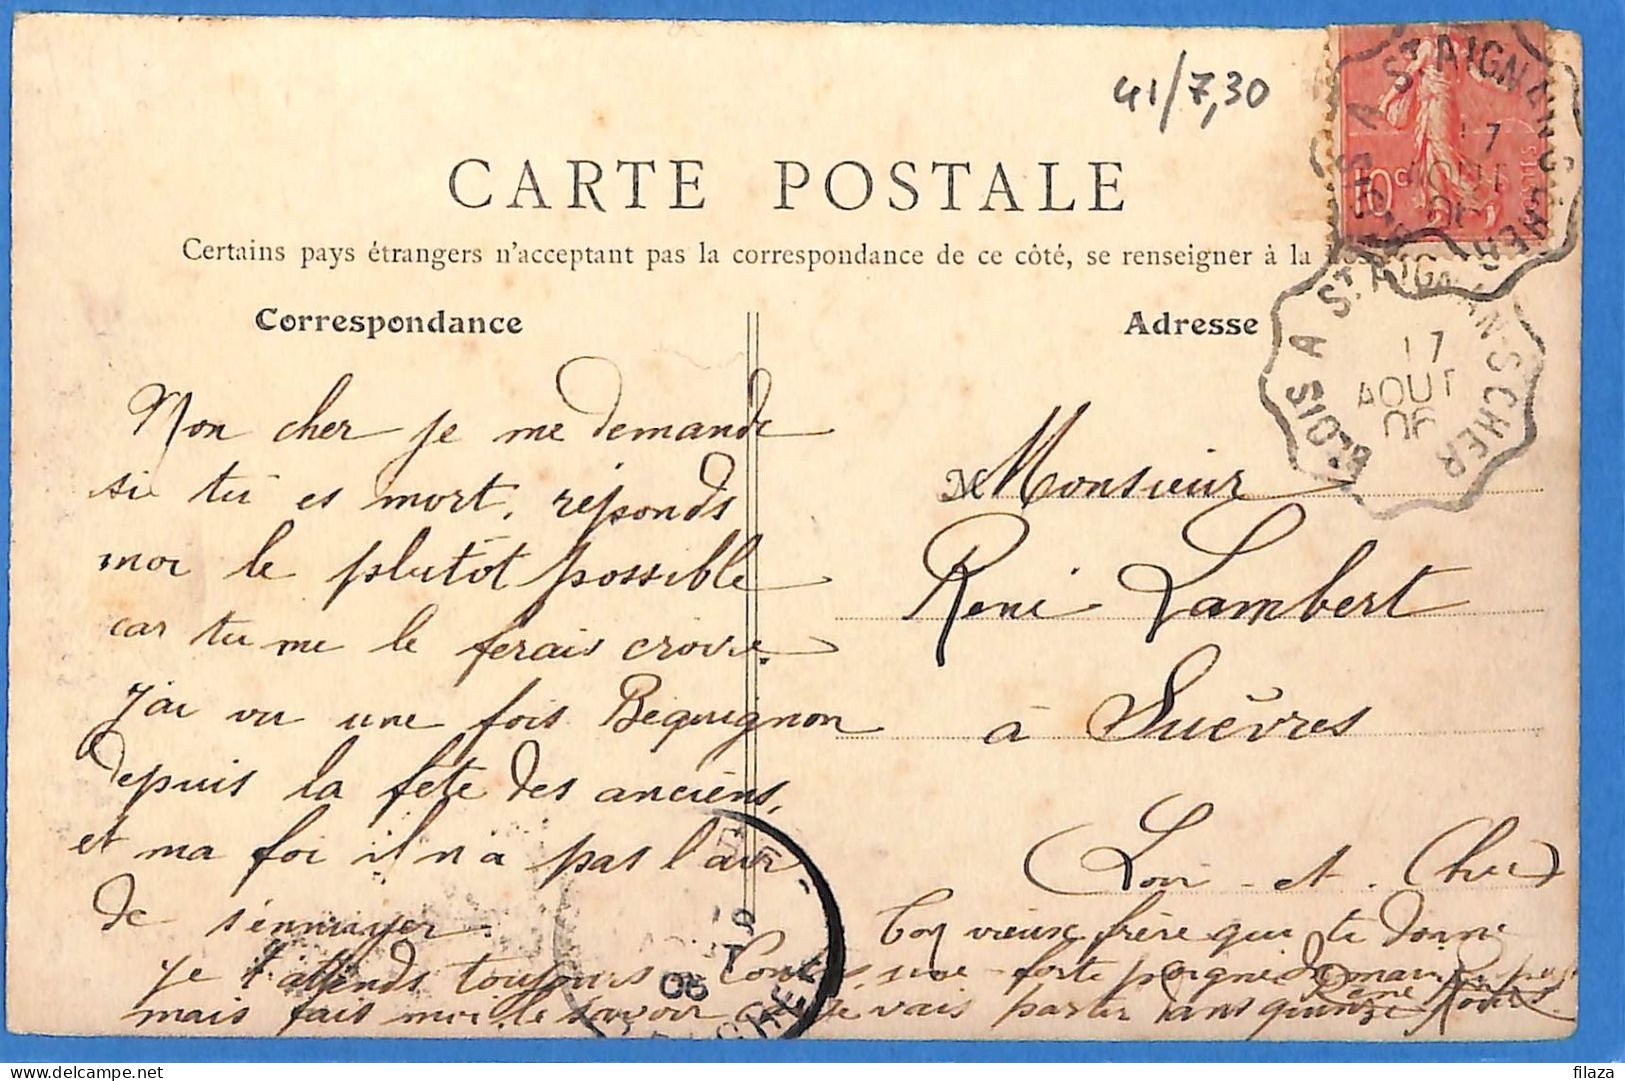 41/7,30
CARTE POSTALE
Certains pays étrangers n'acceptant pas la correspondance de ce côté, se renseigner à la
Correspondance
Adresse
Mon cher je me demande
si tu es mort, réponds
moi le plutôt possible
car tu me le ferais croire.
J'ai vu une fois Bequignon
depuis la fête des anciens,
et ma foi il n'a pas l'air
de s'ennuyer.
Je t'attends toujours
mais fais moi le savoir car je vais partir dans quinze jours
Monsieur
René Lambert
à Suèvres
(Loir-et-Cher)
Ton vieux frère qui te donne
une forte poignée de main
10c
BLOIS A ST. AIGNAN-S-CHER
17
AOUT
06
BLOIS A ST. AIGNAN-S-CHER
17
AOUT
06
06
CHER
filaza